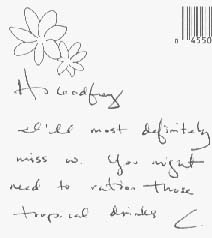 0 4550
Hi Woodfrey
I'll most definitely
miss u. You might
need to ration those
tropical drinks
C.